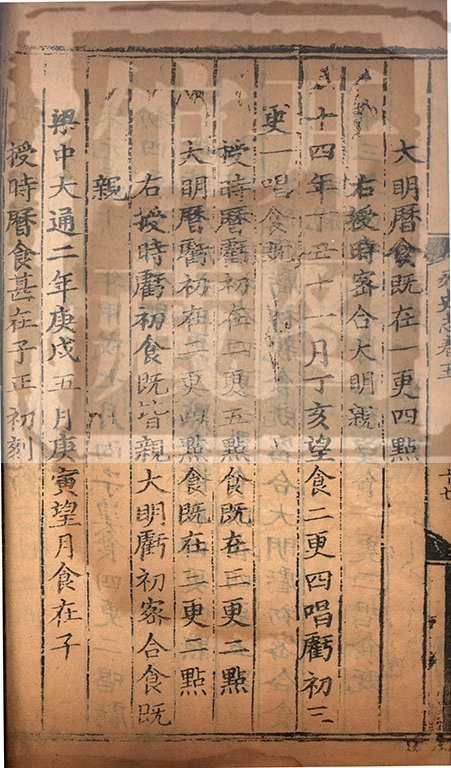 史志卷五
十七
大明曆食既在一更四點
右授時密合大明親
十四年丁丑十一月丁亥望食二更四唱虧初三
更一唱食既
授時曆虧初在二更五點食既在三更二點
大明曆虧初在二更四點食既在三更二點
右授時虧初食既皆親大明虧初密合食既
親
梁中大通二年庚戌五月庚寅望月食在子
授時曆食甚在子正初刻